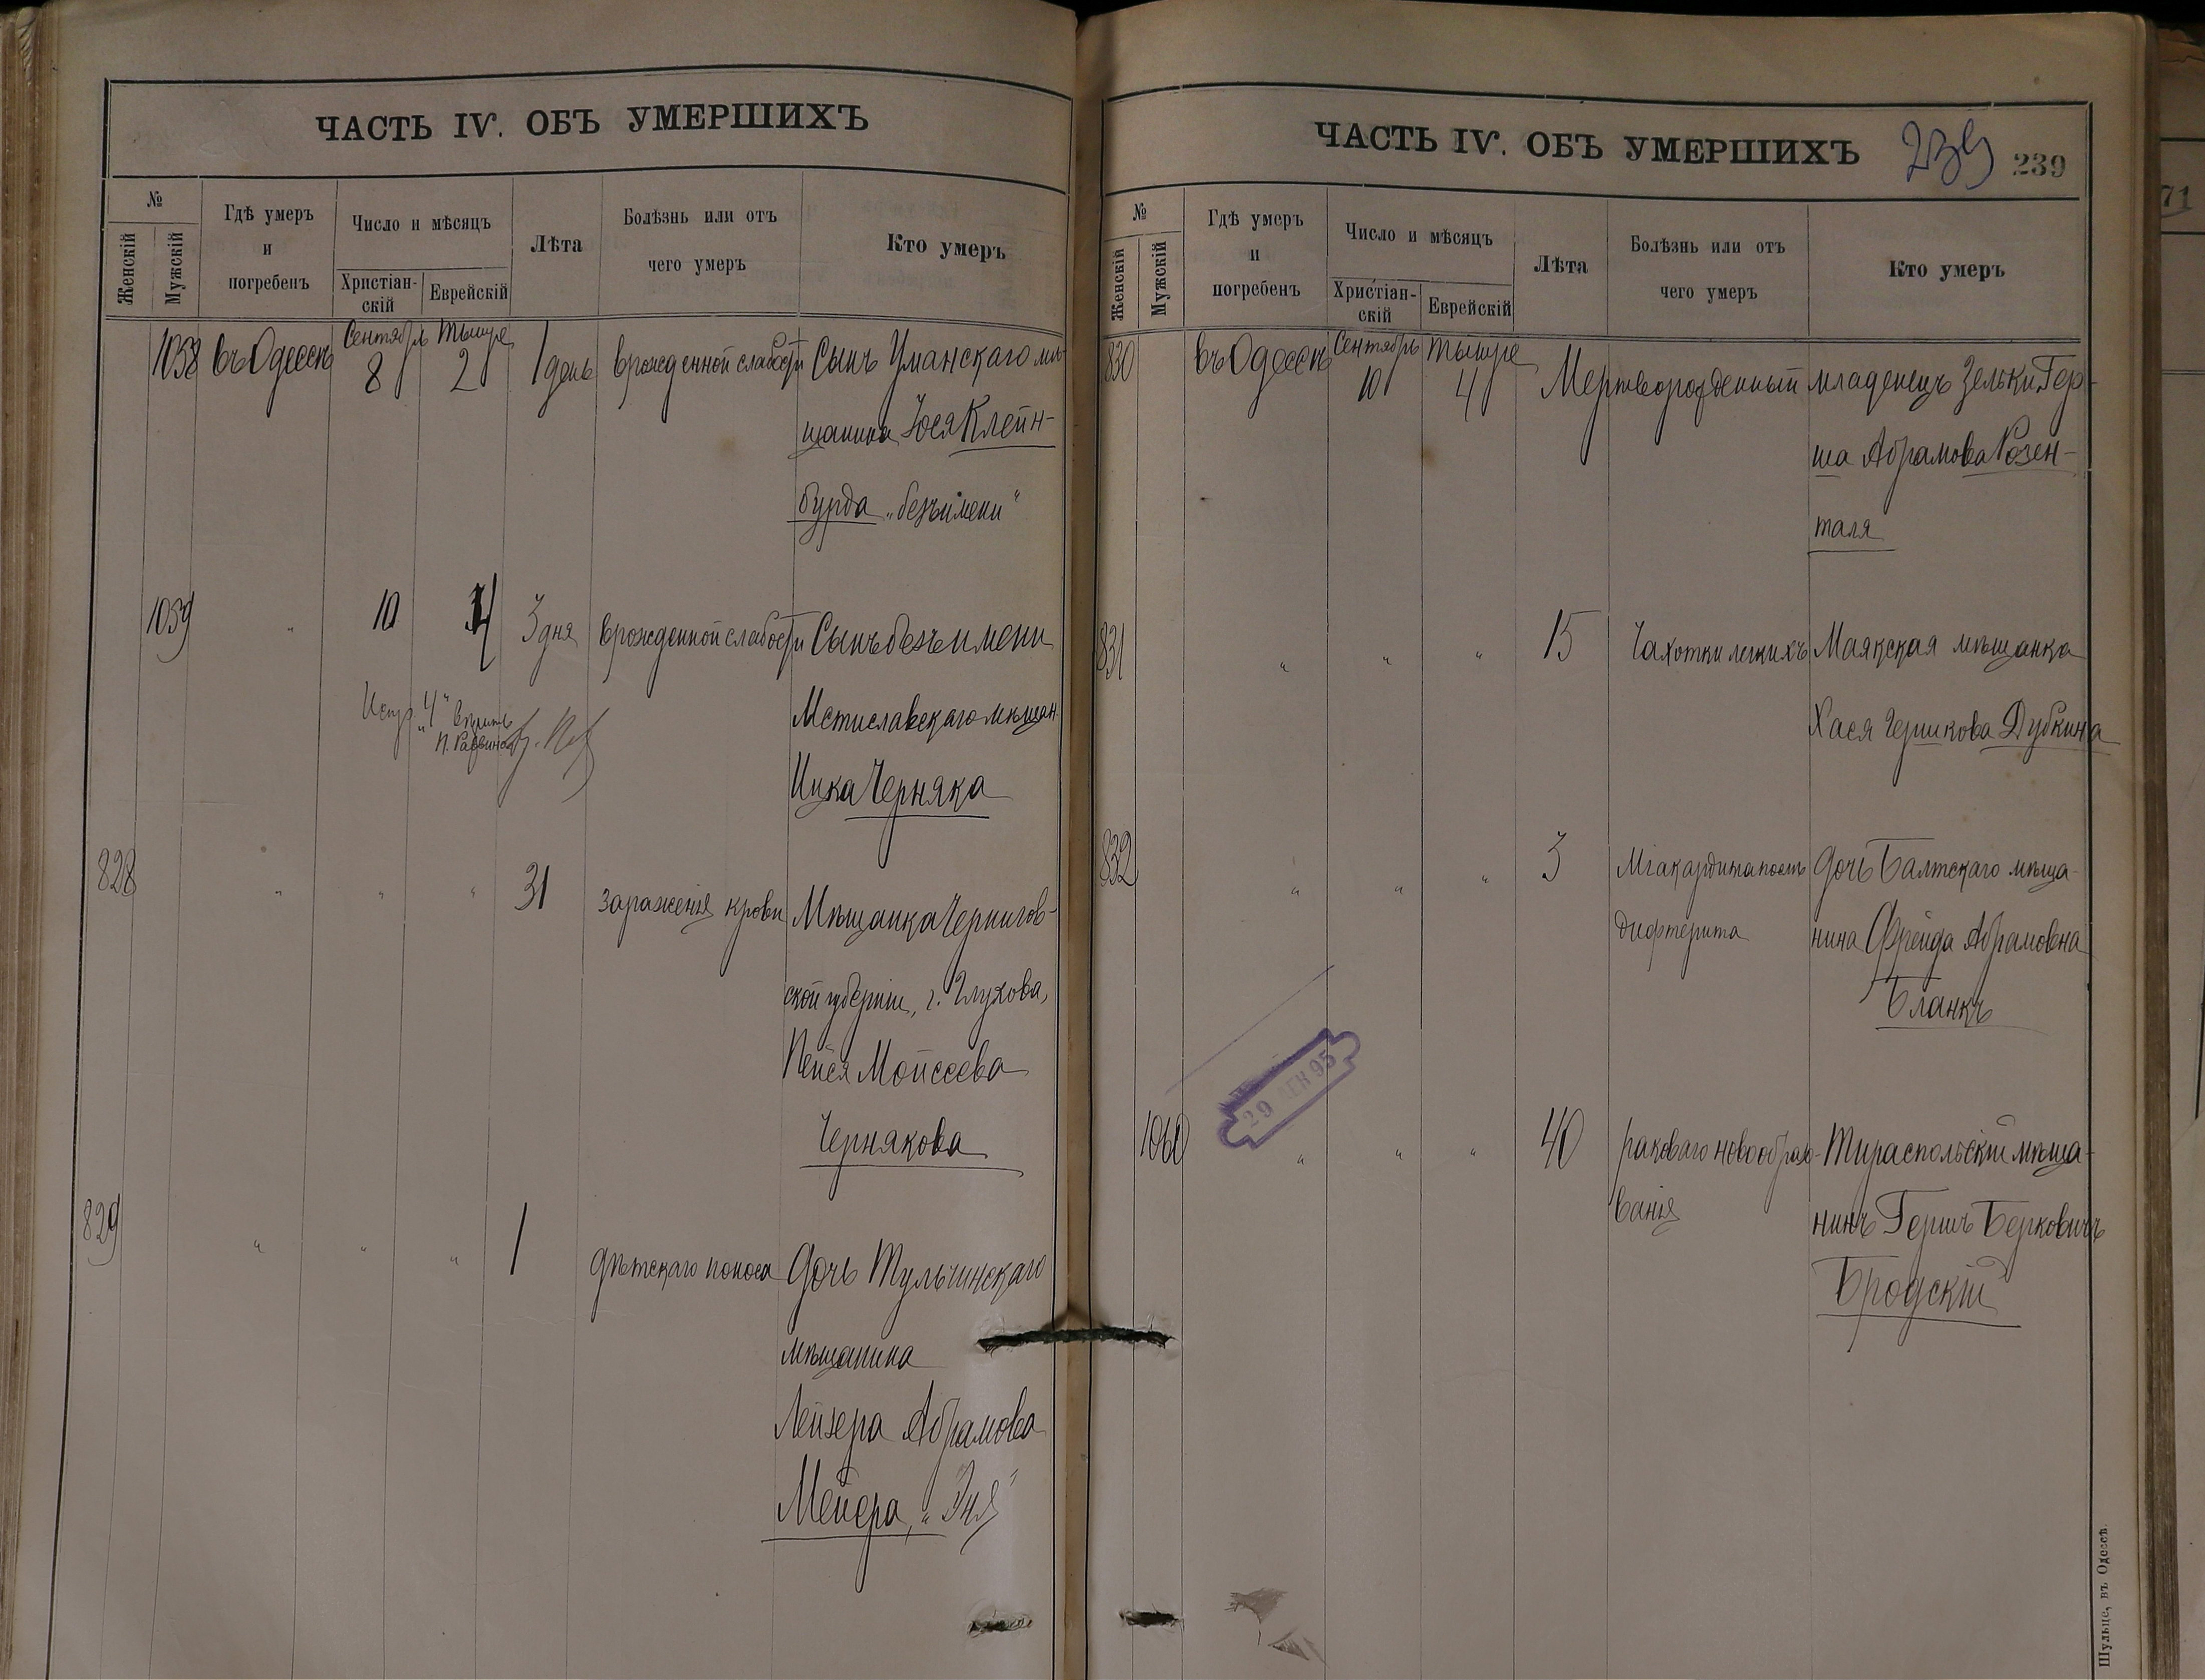 ЧАСТЬ IV. ОБЪ УМЕРШИХЪ
№
Женскій
Мужскій
Гдѣ умеръ
и
погребенъ
Число и мѣсяцъ
Христіан-
скій
Еврейскій
Лѣта
Болѣзнь или отъ
чего умеръ
Кто умеръ
1058 въ Одессѣ Сентябрь 8 Тышре 2 1 день врожденной слабости Сынъ Уманскаго мѣ-
щанина Іося Клейн-
бурда „безъ имени“
1059 " 10 4 3 дня врожденной слабости Сынъ безъ имени
Испр. „4“ вѣрить
Мстиславскаго мѣщан.
Ицка Черняка
828 " " " 31 зараженія крови Мѣщанка Чернигов-
ской губерніи, г. Глухова,
Пейся Мойсеева
Чернякова
829 " " " 1 дѣтскаго поноса Дочь Тульчинскаго
мѣщанина
Лейзера Абрамова
Мейера, „Эня“
ЧАСТЬ IV. ОБЪ УМЕРШИХЪ 239 239
№
Женскій
Мужскій
Гдѣ умеръ
и
погребенъ
Число и мѣсяцъ
Христіан-
скій
Еврейскій
Лѣта
Болѣзнь или отъ
чего умеръ
Кто умеръ
830 въ Одессѣ Сентябрь 10 Тышре 4 Мертворожденный младенецъ Зельки Гер-
ша Абрамова Розен-
таля
831 " " " 15 Чахотки легкихъ Маякская мѣщанка
Хася Гершкова Дубкина
832 " " " 3 Дочь Балтскаго мѣща-
дифтерита нина Фрейда Абрамовна
Бланкъ
29 СЕН 95
1060 " " " 40 раковаго новообразо- Тираспольскій мѣща-
ванія нинъ Гершъ Берковичъ
Бродскій
Шульце, въ Одессѣ.
71